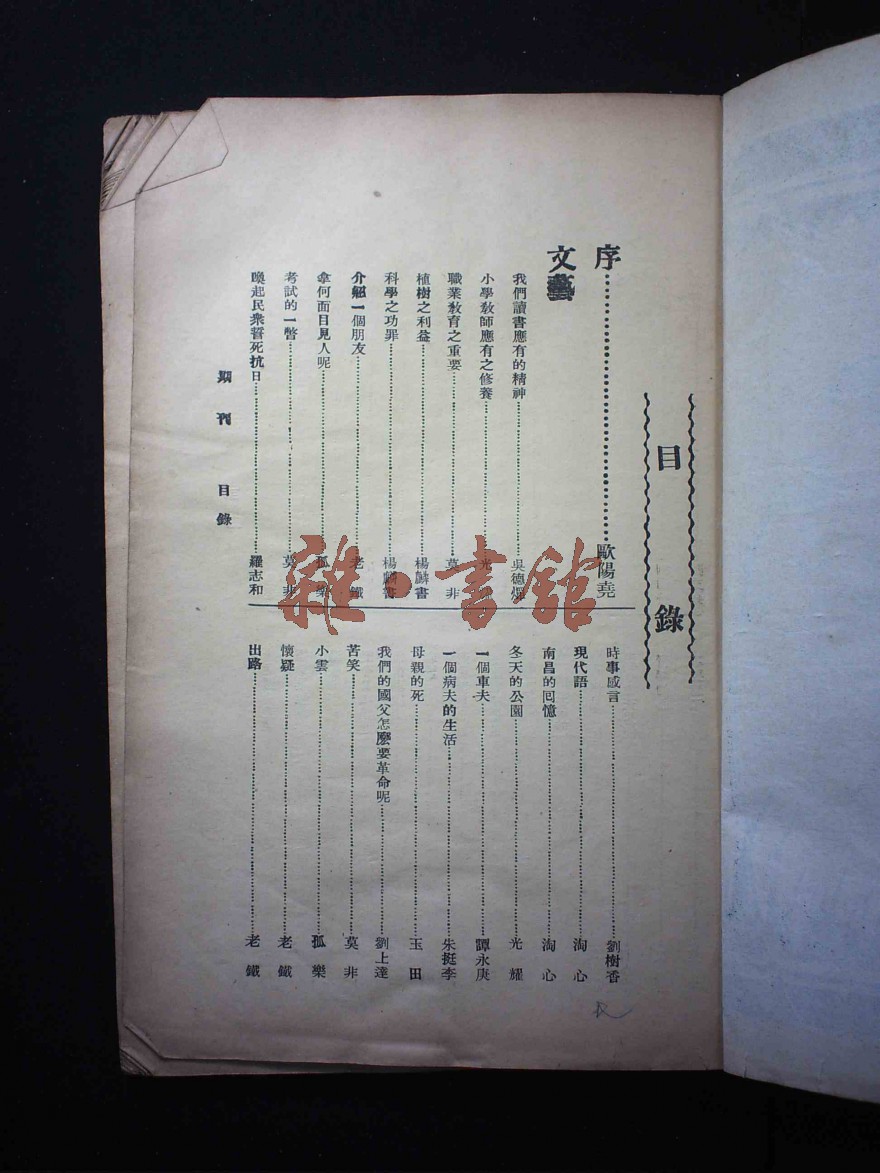 目錄
序……歐陽堯
文藝
我們讀書應有的精神……吳德
小學教師應有之修養……光
職業教育之重要……莫非
植樹之利益……楊麟書
科學之功罪……楊麟書
介紹一個朋友……老鐵
拿何面目見人呢……孤樂
考試的一幣……莫非
喚起民衆誓死抗日……羅志和
時事感言……劉樹香
現代語……淘心
南昌的囘憶……淘心
冬天的公園……光耀
一個車夫……譚永庚
一個病夫的生活……朱挺李
母親的死……玉田
我們的國父怎麽要革命呢……劉上達
苦笑……莫非
小雲……孤樂
懷疑……老鐵
出路……老鐵
期刊 目錄
雜·書館